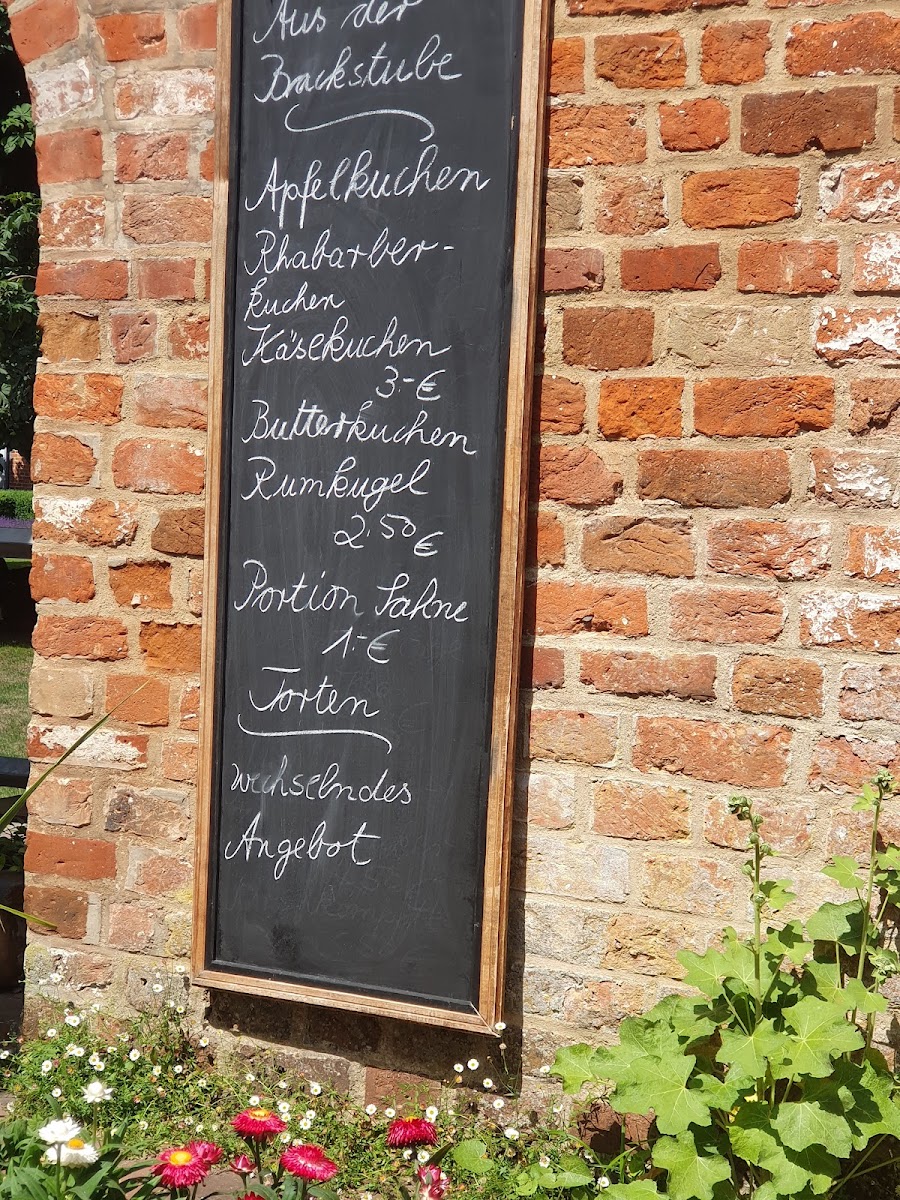 Aus der
Backstube
Apfelkuchen
Rhabarber-
kuchen
Käsekuchen
3.-€
Butterkuchen
Rumkugel
2.50 €
Portion Sahne
1.-€
Torten
wechselndes
Angebot